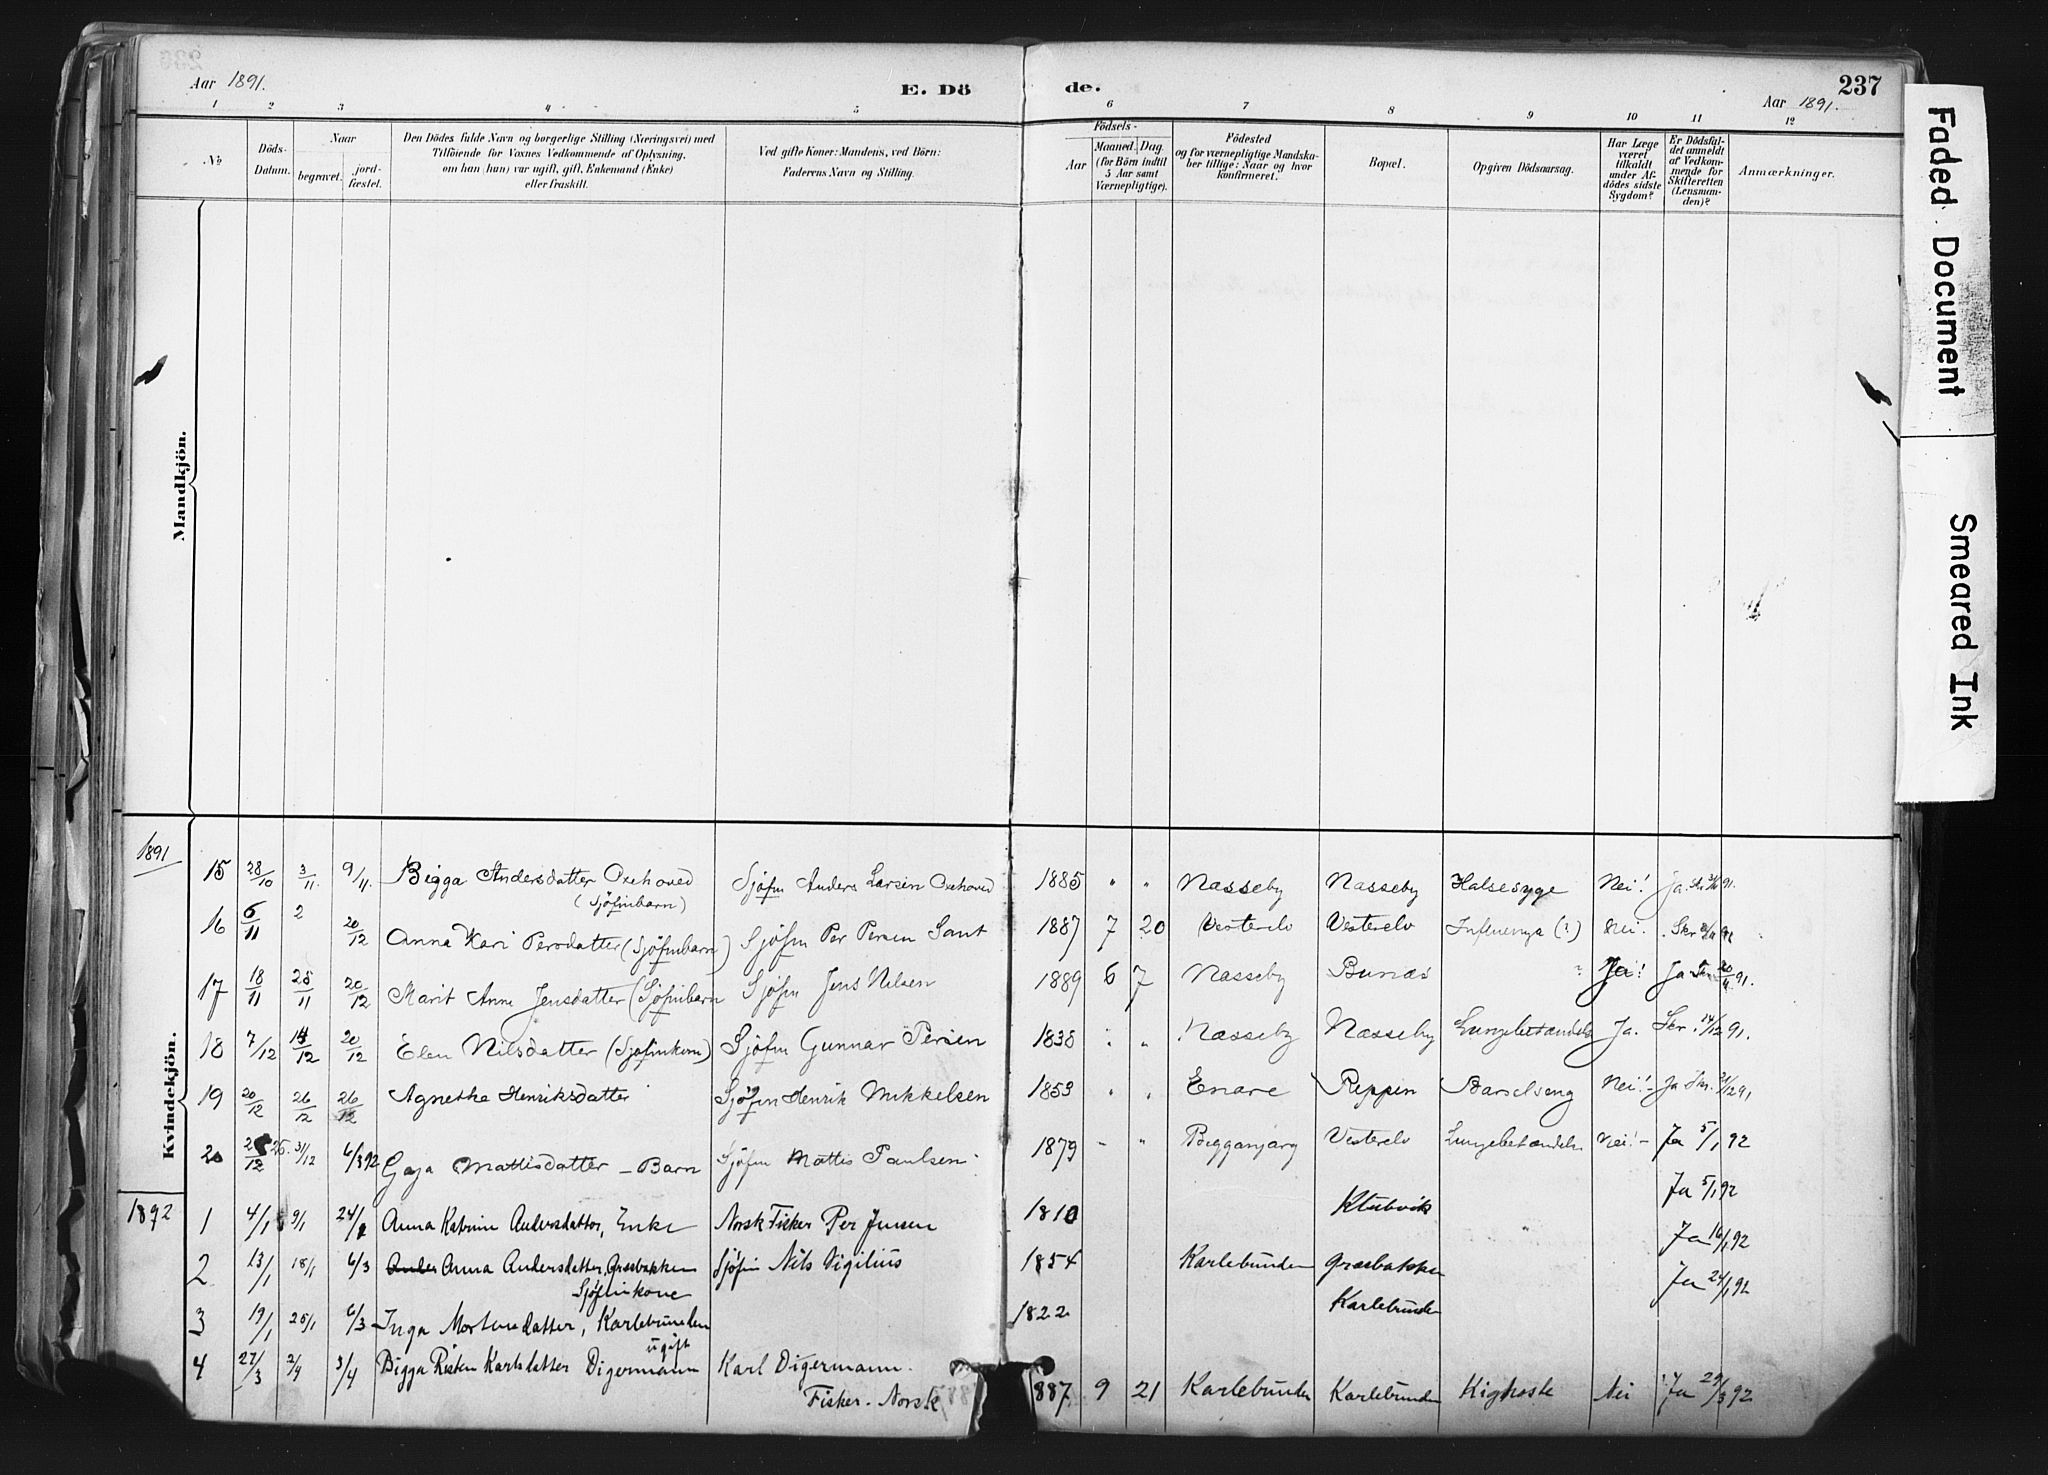 Aar 1891.
E. Dö
de.
Aar 1891.
237
1 2 3 4 5 6 7 8 9 10 11 12
No
Döds-Datum.
Naar
begravet.
jord-fæstet.
Den Dödes fulde Navn og borgerlige Stilling (Næringsvei) med
Tilföiende for Voxnes Vedkommende af Oplysning,
om han (hun) var ugift, gift, Enkemand (Enke)
eller fraskilt.
Ved gifte Koner: Mandens, ved Börn:
Faderens Navn og Stilling.
Födsels-
Aar
Maaned. Dag.
(for Börn indtil
5 Aar samt
Værnepligtige).
Födested
og for værnepligtige Mandska-
ber tillige: Naar og hvor
konfirmeret.
Bopæl.
Opgiven Dödsaarsag.
Har Læge
været
tilkaldt
under Af-
dödes sidste
Sygdom?
Er Dödsfal-
det anmeldt
af Vedkom-
mende for
Skifteretten
(Lensman-
den)?
Anmærkninger.
Mandkjön.
Kvindekjön.
Faded Document
Smeared Ink
1891
15 28/10 3/11. 9/11. Bigga Andersdatter Oxehoved Sjöfin Anders Larsen Oxehoved 1885 " " Næsseby Næsseby Halsesyge Nei! Ja.
(Sjöfinbarn)
16 6/11 2 20/12 Anna Kari Persdatter (Sjöfinbarn) Sjöfin Per Persen 1887 7 20 Vesterelv Vesterelv Influenza (?) Nei. Skr
17 18/11 25/11 20/12 Marit Anne Jensdatter (Sjöfinbarn Sjöfin Jens Nilsen 1889 6 7 Næsseby Bunæs ? Ja! Ja 20/11 91.
18 7/12 14/12 20/12 Elen Nilsdatter (Sjöfinkone) Sjöfin Gunnar Persen 1838 " " Næsseby Næsseby Lungebetændelse Ja. Skr. 14/12 91.
19 20/12 26/12 26/12 Agnethe Henriksdatter Sjöfin Henrik Mikkelsen 1853 " " Enare Reppen Barselseng Nei! Ja Skr. 12 91
20 12 31/12 6/3 92 Gaja Mattisdatter - Barn Sjöfin Mattis Paulsen 1879 - " Bigganjarg Vesterelv Lungebetændelse Nei! - Ja 5/1 92
1892
1 4/1 9/1 24/ Anna Katrine Andersdatter, Enke Norsk Fisker Per Jensen 1810 Klubvik " Ja 5/1 92
2 13/1 18/1 6/3 Anna Andersdatter, Græsbakken Sjöfin Nils Vigilius 1854 Karlebunden Græsbakken Ja 16/1 92
Sjöfinkone
3 19/1 25/1 6/3 Inga Mortensdatter, Karlebunden 1822 Karlebunden Ja 24/1 92
ugift
4 27/3 2/4 3/4 Bigga Risten Karlsdatter Digermann Karl Digermann.
Fisker. Norsk 887 9 21 Karlebunden Karlebunden Kighoste Nei Ja 29/3 92